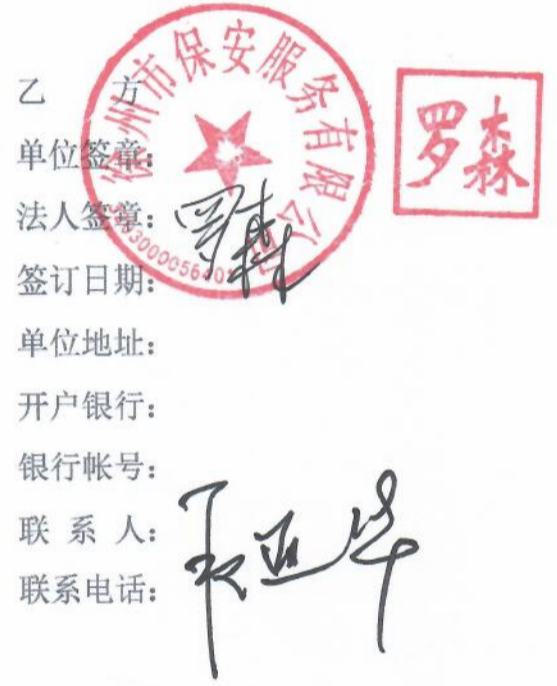 乙 方
单位签章:
法人签章:
签订日期:
单位地址:
开户银行:
银行帐号:
联 系 人:
联系电话:
徐州市保安服务有限公司
罗森
罗森